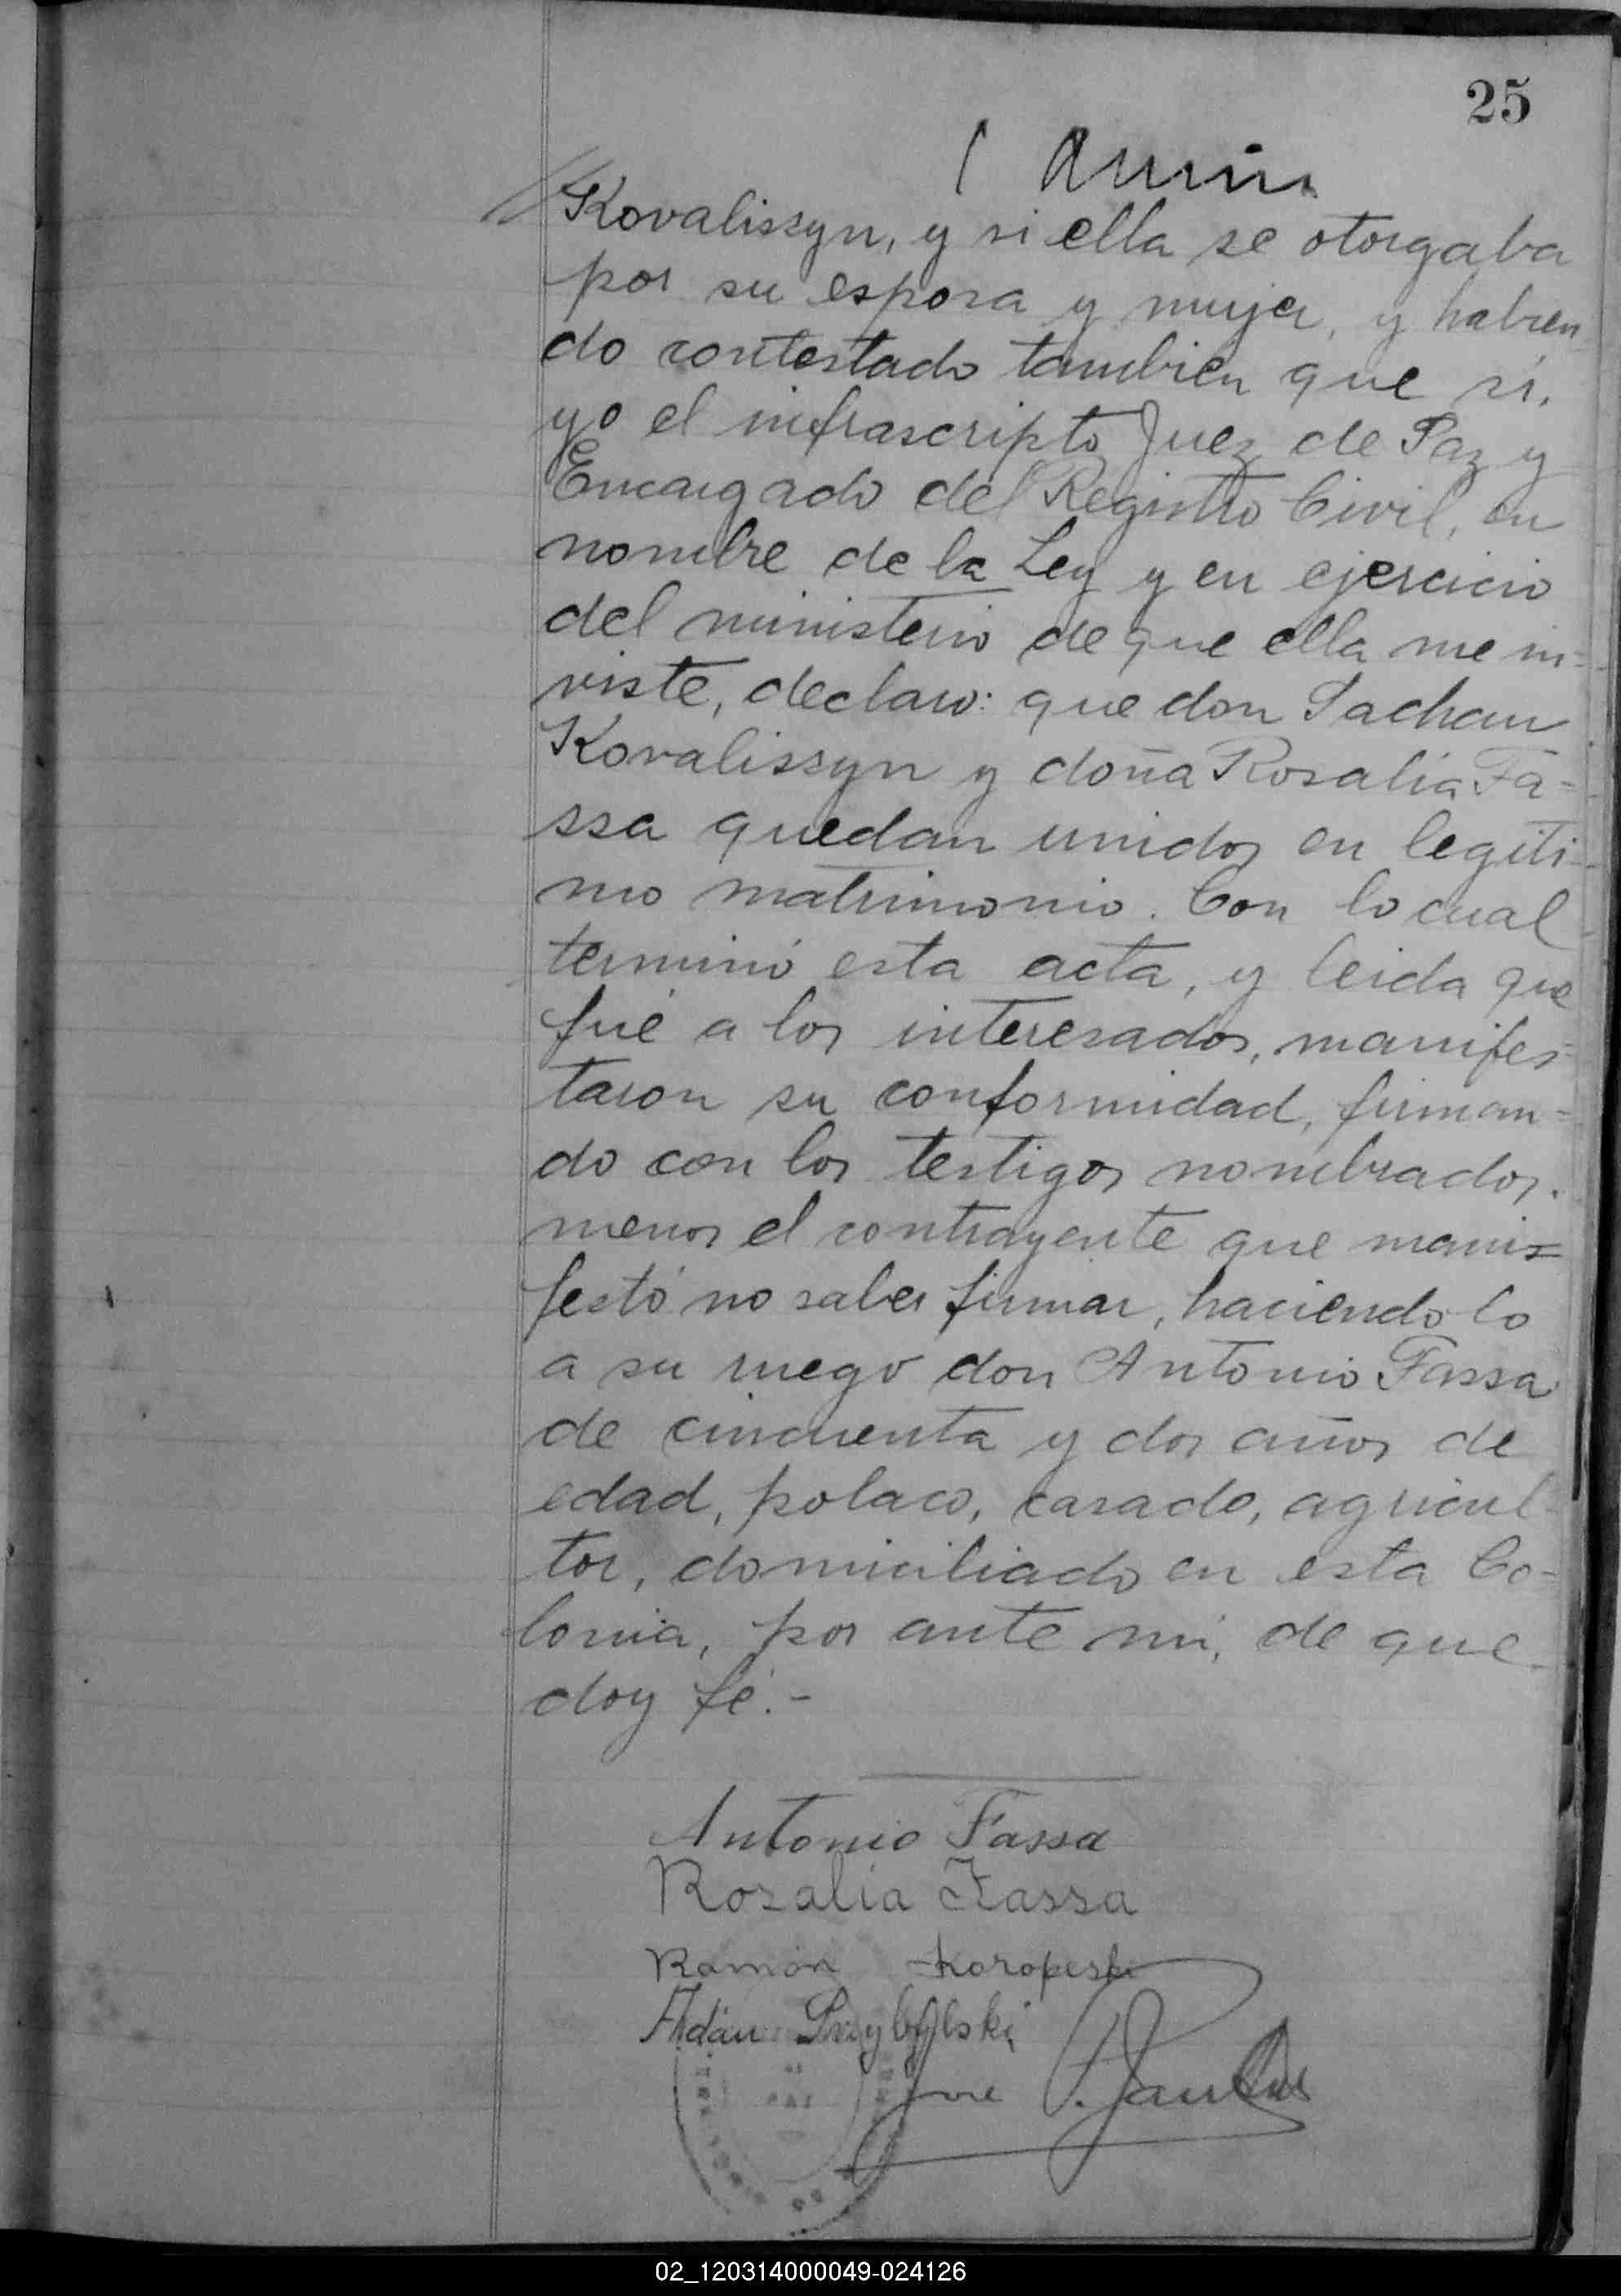 25
Kovalissyn, y si ella se otorgaba
por su esposa y mujer, y habien
do contestado tambien que si,
yo el infrascripto Juez de Paz y
Encargado del Registro Civil, en
nombre de la Ley y en ejercicio
del ministerio de que ella me in-
viste, declaro: que don Pachan
Kovalissyn y doña Rosalia Fa-
ssa quedan unidos en legiti-
mo matrimonio. Con lo cual
terminó esta acta, y leida que
fué a los interesados, manifes-
taron su conformidad, firman-
do con los testigos nombrados,
menos el contrayente que mani=
festó no saber firmar, haciendo lo
a su ruego don Antonio Fassa
de cincuenta y dos años de
edad, polaco, casado, agricul-
tor, domiciliado en esta Co-
lonia, por ante mi, de que
doy fé.-
Antonio Fassa
Rosalia Fassa
Ramón Koropeski
Adán Przybylski
02_120314000049-024126